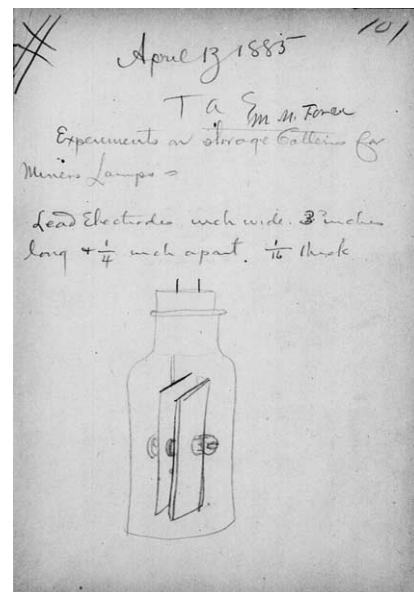 101
April 13 1885
T a E m N. Force
Experiments on storage batteries for
Miners Lamps =
Lead Electrodes inch wide. 3 inches
long + 1/4 inch apart. 1/16 thick